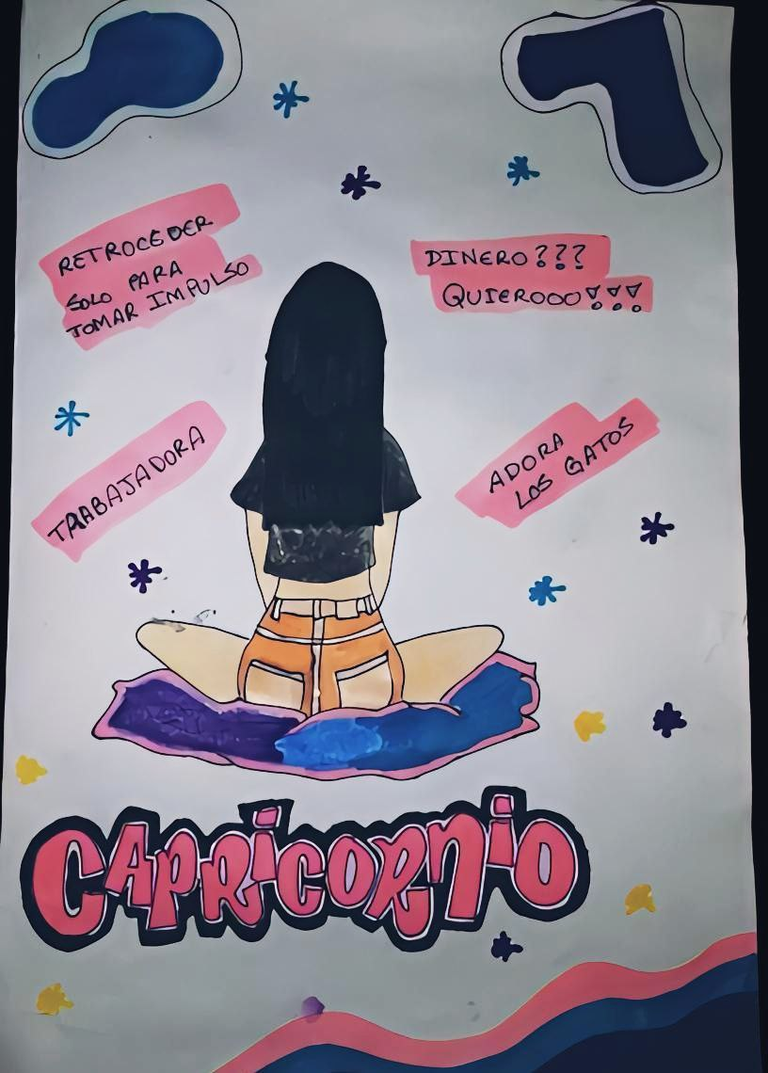 RETROCEDER
SOLO PARA
TOMAR IMPULSO
DINERO???
QUIEROOO!!!
TRABAJADORA
ADORA
LOS GATOS
CAPRICORNIO